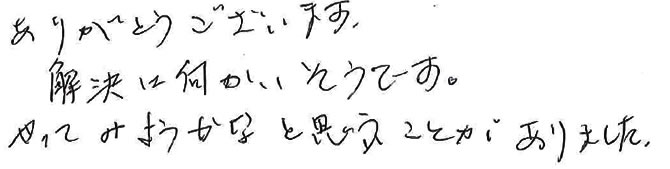 ありがとうございます。
解決に向かいそうです。
やってみようかなと思うことがありました。